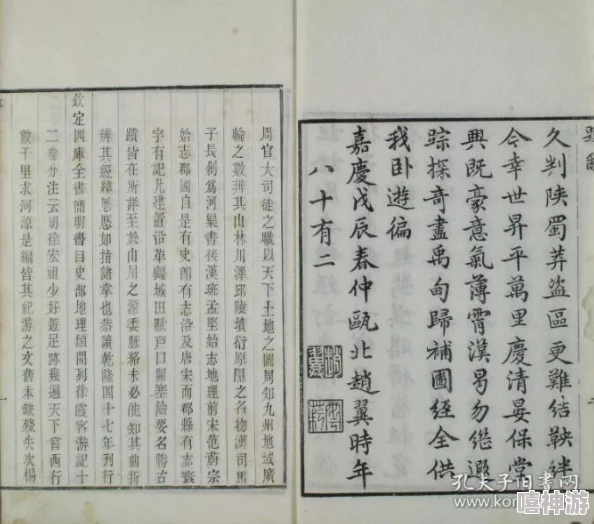 久判陕蜀莽盜區更難結靺韈
今幸世昇平萬里慶清晏保掌
興既豪意氣薄霄漢曷勿繼遐
踪探奇盡禹甸歸補圖經全供
我卧遊徧
嘉慶戊辰春仲甌北趙翼時年
八十有二
周官大司徒之職以天下土地之圖周知九州地域廣
輪之數辨其山林川澤邱陵墳衍原隰之名物漢司馬
子長創爲河渠書後漢班孟堅始志地理前宋范蔚宗
始志郡國自是有史卽有志沿及唐宋而郡縣有志寰
宇有記凡建置沿革疆域田賦戸口關塞險要名勝古
蹟皆在所詳至於山川之源委脈絡未必能曲折
辨其經緯歷歷如指諸掌也恭讀乾隆四十七年刊行
欽定四庫全書簡明書目史部地理類開列徐霞客游記十
二卷分注云明徐宏祖少好遊足跡幾遍天下嘗西行
數千里求河源是編皆其紀游之文舊本缺殘失次楊
孔夫子旧書網
嘻神游